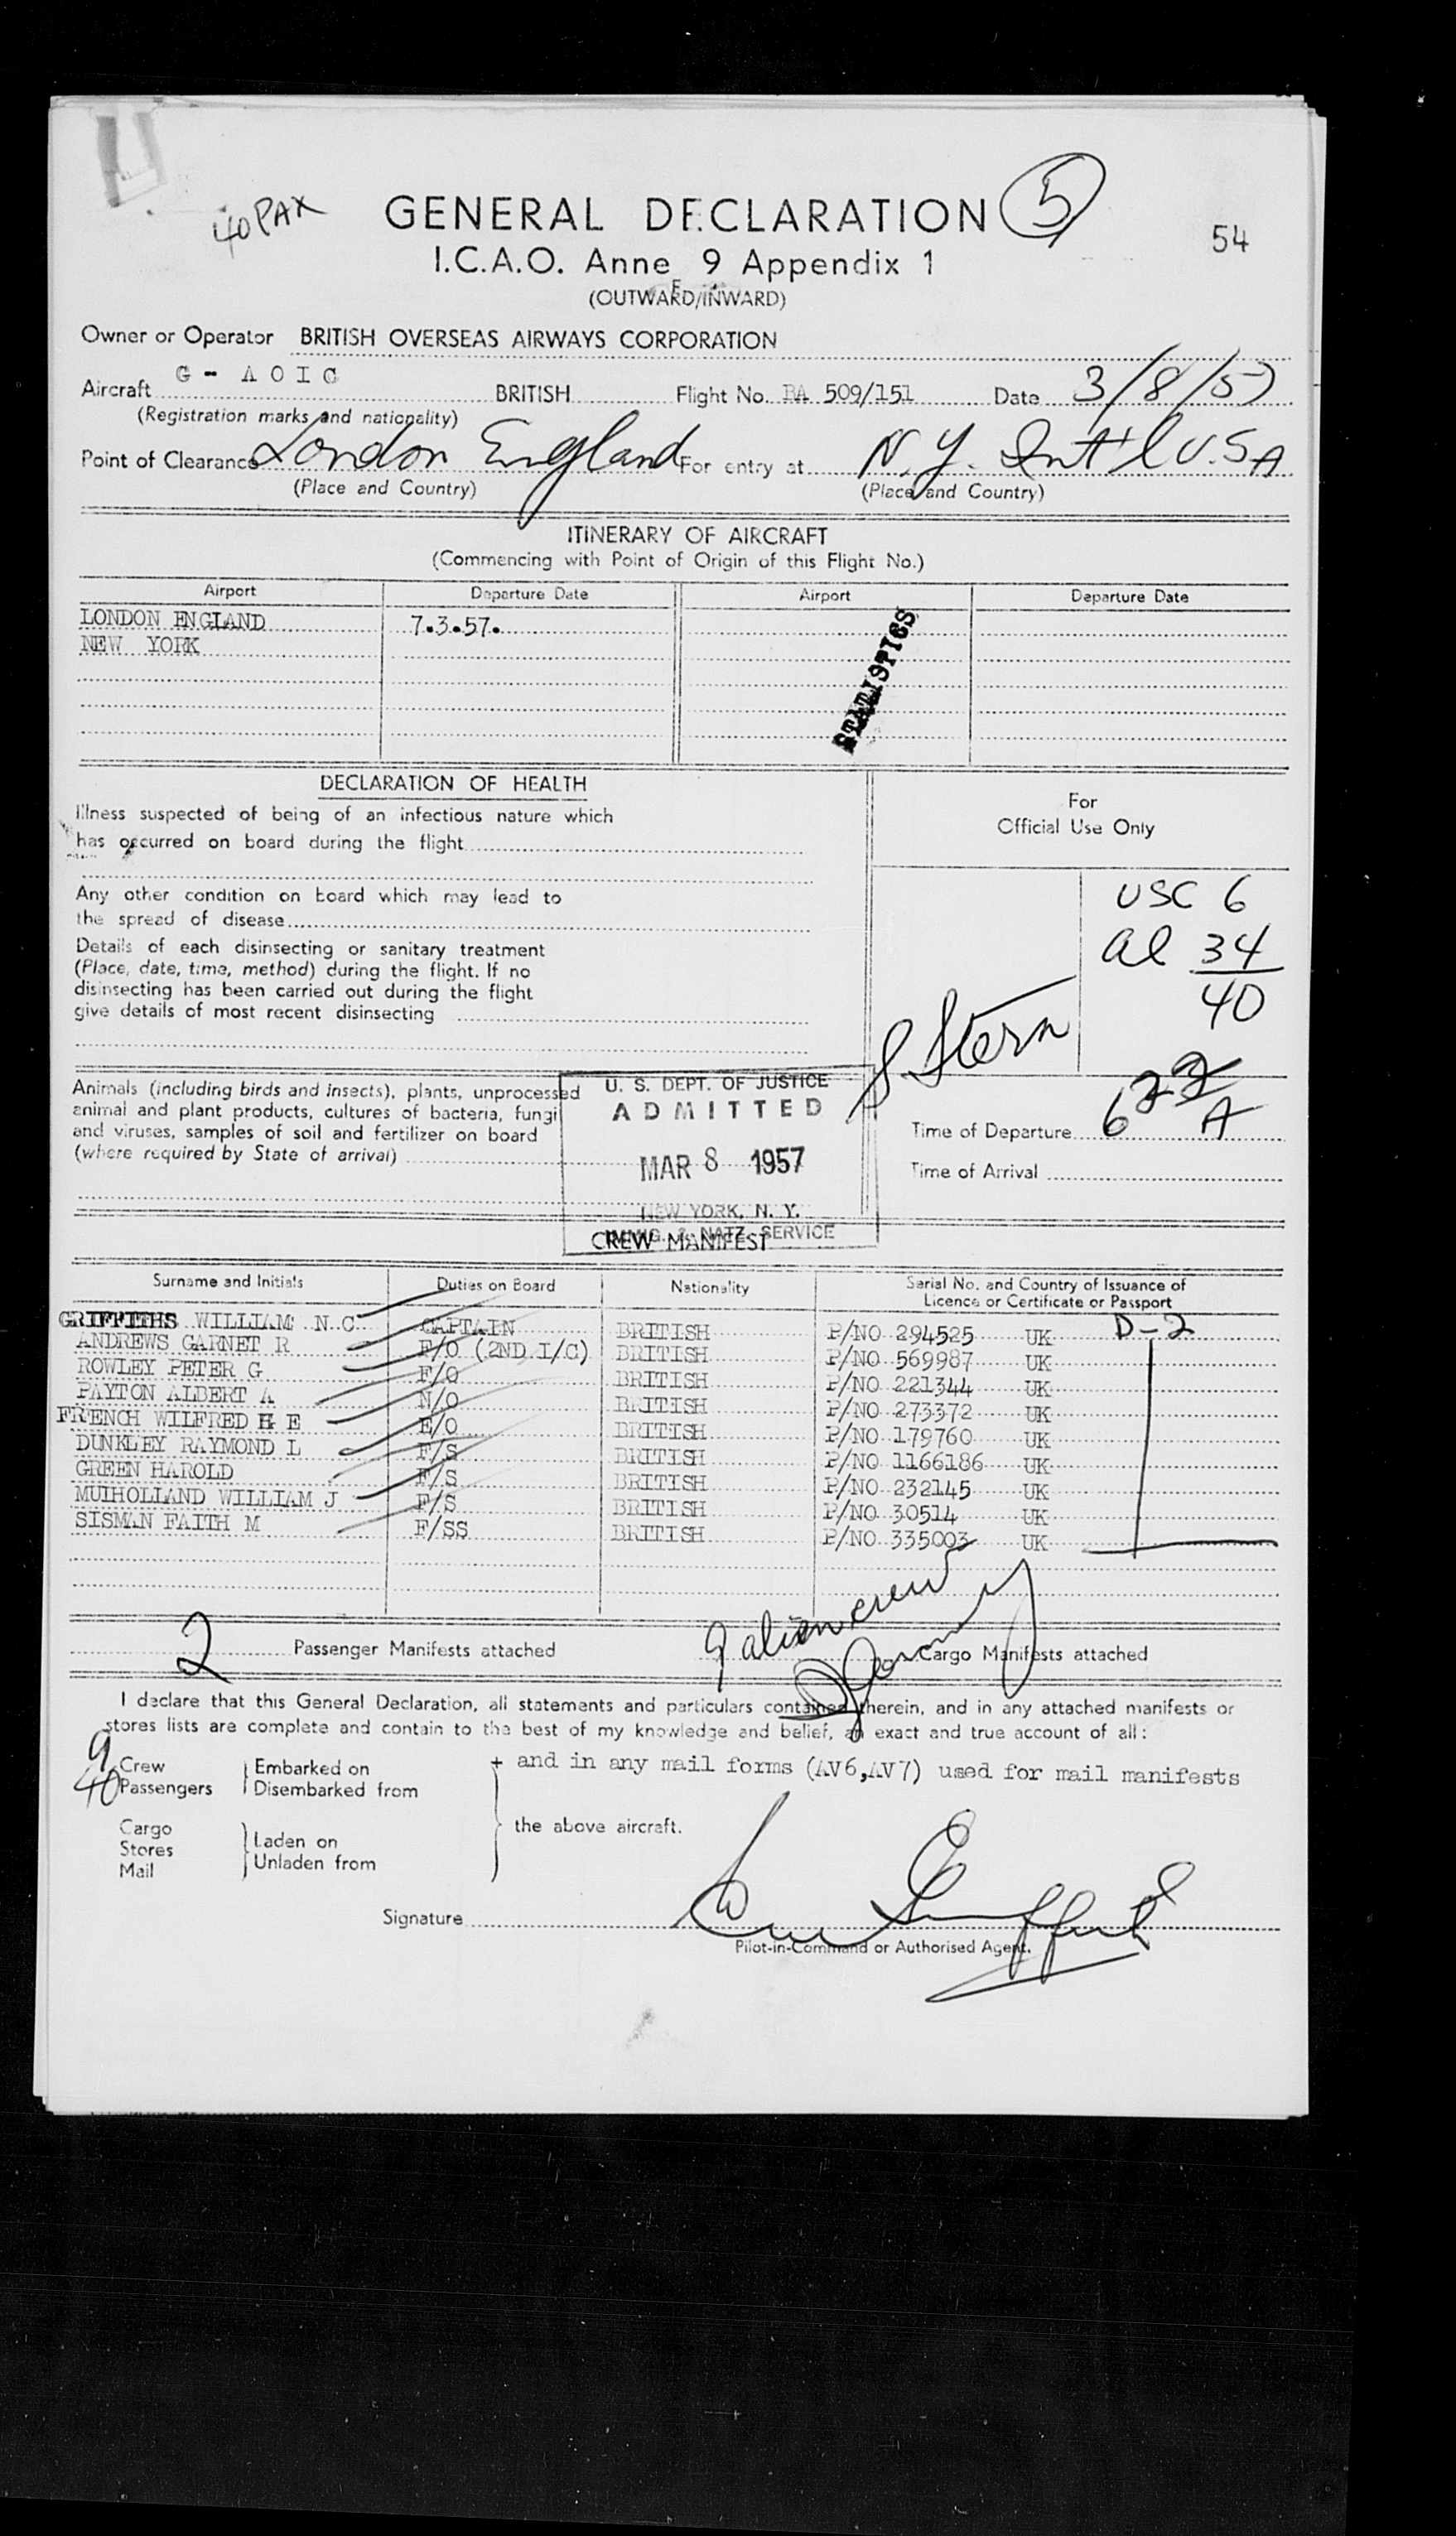 40 PAX
GENERAL DECLARATION
5
54
I.C.A.O. Anne 9 Appendix 1
(OUTWARD/INWARD)
Owner or Operator BRITISH OVERSEAS AIRWAYS CORPORATION
Aircraft G - AOIC BRITISH Flight No. BA 509/151 Date 3/8/57
(Registration marks and nationality)
Point of Clearance London England For entry at N.Y. Int'l U.S.A
(Place and Country) (Place and Country)
ITINERARY OF AIRCRAFT
(Commencing with Point of Origin of this Flight No.)
Airport Departure Date Airport Departure Date
LONDON ENGLAND 7.3.57.
NEW YORK
STATISTICS
DECLARATION OF HEALTH
For
Official Use Only
Illness suspected of being of an infectious nature which
has occurred on board during the flight
Any other condition on board which may lead to
the spread of disease
USC 6
al 34
40
Details of each disinsecting or sanitary treatment
(Place, date, time, method) during the flight. If no
disinsecting has been carried out during the flight
give details of most recent disinsecting
S. Stern
Animals (including birds and insects), plants, unprocessed
animal and plant products, cultures of bacteria, fungi
and viruses, samples of soil and fertilizer on board
(where required by State of arrival)
U. S. DEPT. OF JUSTICE
ADMITTED
MAR 8 1957
NEW YORK, N. Y.
IMMIG. & NATZ. SERVICE
Time of Departure 6 22 A
Time of Arrival
CREW MANIFEST
Surname and Initials Duties on Board Nationality Serial No. and Country of Issuance of
Licence or Certificate or Passport
GRIFFITHS WILLIAM N C CAPTAIN BRITISH P/NO 294525 UK D-2
ANDREWS GARNET R F/O (2ND I/C) BRITISH P/NO 569987 UK
ROWLEY PETER G F/O BRITISH P/NO 221344 UK
PAYTON ALBERT A N/O BRITISH P/NO 273372 UK
FRENCH WILFRED H E E/O BRITISH P/NO 179760 UK
DUNKLEY RAYMOND L F/S BRITISH P/NO 1166186 UK
GREEN HAROLD F/S BRITISH P/NO 232145 UK
MUIHOLLAND WILLIAM J F/S BRITISH P/NO 30514 UK
SISMAN FAITH M F/SS BRITISH P/NO 335003 UK
9 alien crew
2 Passenger Manifests attached Cargo Manifests attached
I declare that this General Declaration, all statements and particulars contained therein, and in any attached manifests or
stores lists are complete and contain to the best of my knowledge and belief, an exact and true account of all:
9 Crew Embarked on + and in any mail forms (AV6,AV7) used for mail manifests
40 Passengers Disembarked from
the above aircraft.
Cargo Laden on
Stores
Mail Unladen from
Signature
Pilot-in-Command or Authorised Agent.